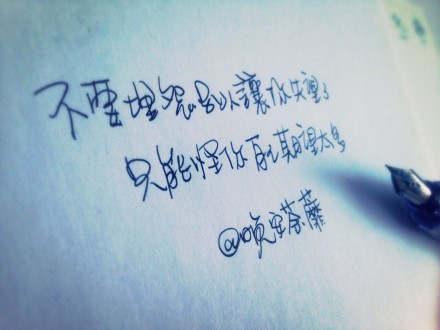 不要埋怨别人讓你失望了
只能怪你自己期望太多
@晚安荼蘼